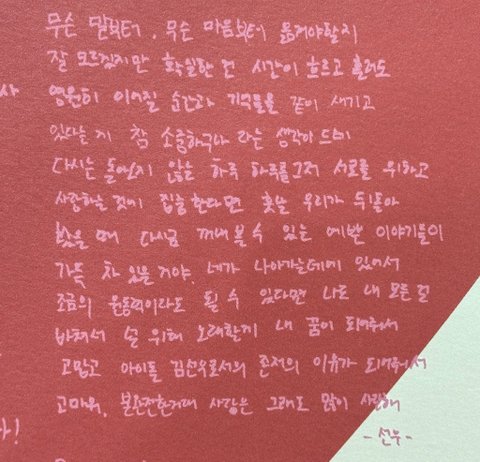 무슨 말부터, 무슨 마음부터 옮겨야할지
잘 모르겠지만 확실한 건 시간이 흐르고 흘러도
사 영원히 이어질 순간과 기억들을 같이 새기고
있다는 게 참 소중하구나 라는 생각이 드네
다시는 돌아오지 않는 하루 하루를 그저 서로를 위하고
사랑하는 것에 집중한다면 훗날 우리가 뒤돌아
봤을 때 다시금 꺼내볼 수 있는 예쁜 이야기들이
가득 차 있을 거야. 네가 나아가는데에 있어서
조금의 원동력이라도 될 수 있다면 나도 내 모든 걸
바쳐서 널 위해 노래할게 내 꿈이 되어줘서
고맙고 아이돌 김선우로서의 존재의 이유가 되어줘서
고마워. 불완전한거래 사랑은 그래도 많이 사랑해
다!
-선우-